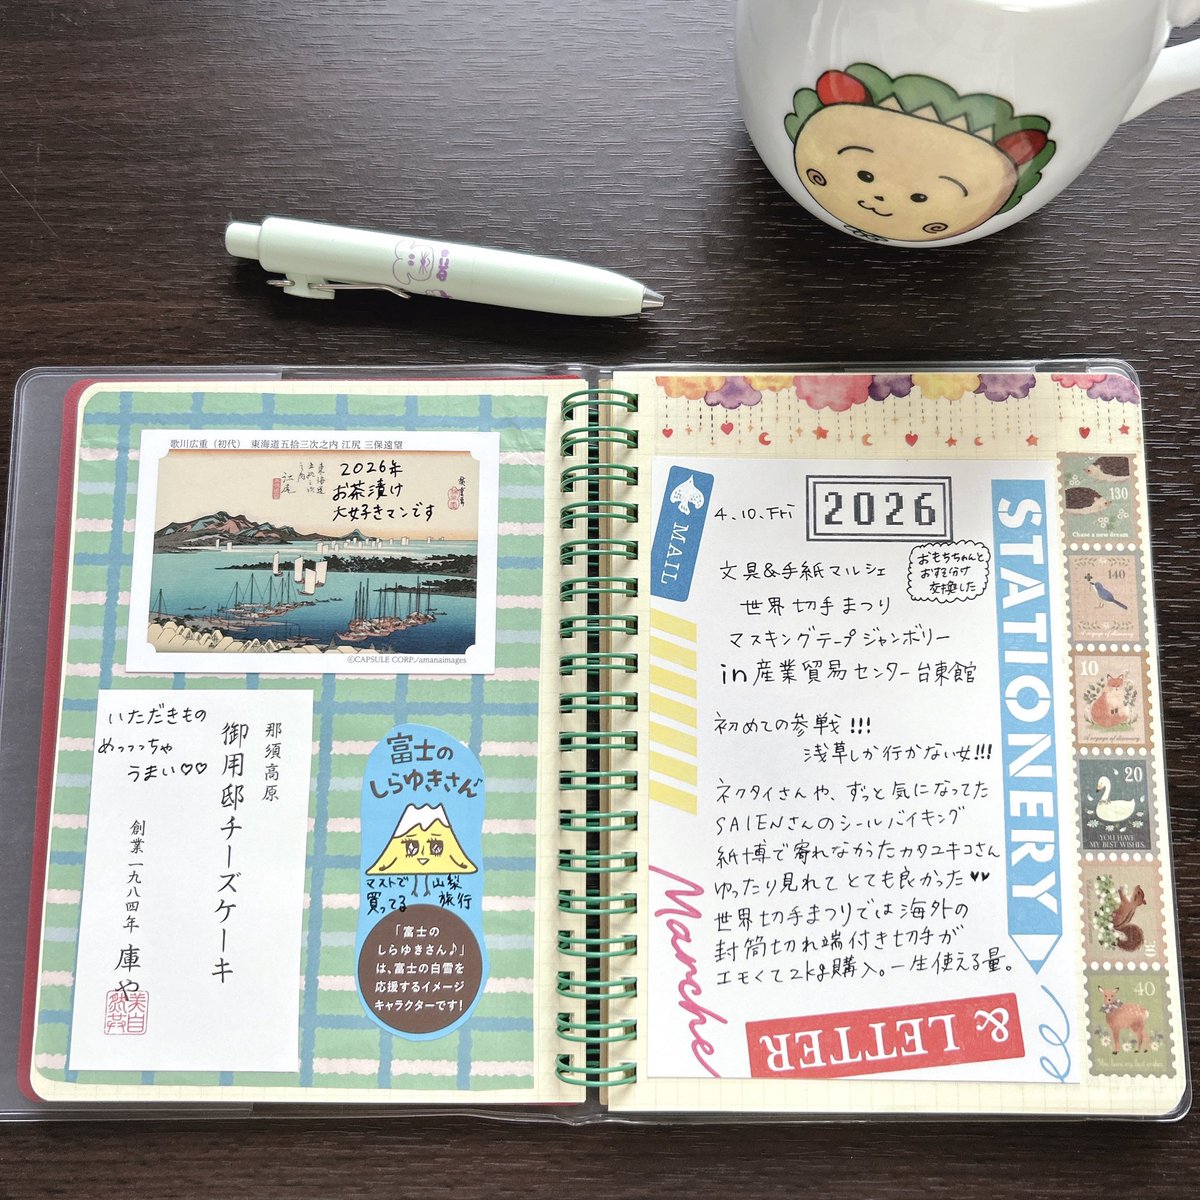 歌川広重（初代） 東海道五拾三次之内 江尻 三保遠望
東海道
江尻
2026年
お茶漬け
大好きマンです
©CAPSULE CORP./amanaimages
いただきもの
めっっっちゃ
うまい♡♡
那須高原
御用邸チーズケーキ
創業一九八四年 庫や
富士の
しらゆきさん
マストで
買ってる
山梨
旅行
「富士の
しらゆきさん♪」
は、富士の白雪を
応援するイメージ
キャラクターです!
MAIL
4.10.Fri
2026
文具&手紙マルシェ
おもちちゃんと
おすそ分け
交換した
世界切手まつり
マスキングテープジャンボリー
in 産業貿易センター台東館
初めての参戦!!!
浅草しか行かない女!!!
ネクタイさんや、ずっと気になってた
SAIENさんのシールバイキング
紙博で寄れなかったカワユキコさん
ゆったり見れてとても良かった♥♥
世界切手まつりでは海外の
封筒切れ端付き切手が
エモくて2kg購入。一生使える量。
STATIONERY
& LETTER
Marche
130
Chase a new dream
140
10
20
YOU HAVE
MY BEST WISHES.
40